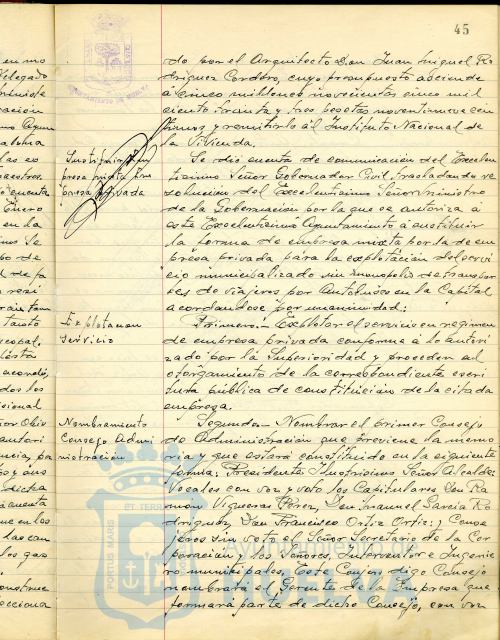 45
do por el Arquitecto Don Juan Miguel Ro
driguez Cordero, cuyo presupuesto asciende
á cinco millones novecientas cinco mil
ciento treinta y tres pesetas noventa nueve cen
timos y remitirlo al Instituto Nacional de
la Vivienda.
Se dió cuenta de comunicación del Excelen
tisimo Señor Gobernador Civil trasladando re
solucion del Excelentisimo Señor Ministro
de la Gobernación por la que se autoriza á
este Excelentisimo Ayuntamiento á sustituir
la forma de empresa mixta por la de em
presa privada para la explotación del servi
cio municipalizado sin monopolio de transpor
tes de viajeros por Autobuses en la Capital
acordandose por unanimidad:
Primero.- Explotar el servicio en regimen
de empresa privada conforme á lo autori
zado por la Superioridad y proceder al
otorgamiento de la correspondiente escri
tura pública de constitución de la citada
empresa.
Segundo.- Nombrar el primer Consejo
de Administración que previene la memo
ria y que estará constituido en la siguiente
forma: Presidente: Ilustrisimo Señor Alcalde:
Vocales con voz y voto los Capitulares Don Ra
mon Vigueras Pérez, Don Manuel Garcia Ro
driguez, Don Francisco Ortiz Ortiz; y Conse
jeros sin voto el Señor Secretario de la Cor
poración y los Señores, Interventor e Ingenie
ro municipales. Este Consejo digo Consejo
nombrará el Gerente de la Empresa que
formará parte de dicho Consejo, con voz
presa mixta
presa privada
Explotacion
Servicio
Nombramiento
Consejo Admi
nistración
AYUNTAMIENTO DE HUELVA
PORTUS MARIS ET TERRAE
Ayuntamiento de
HUELVA